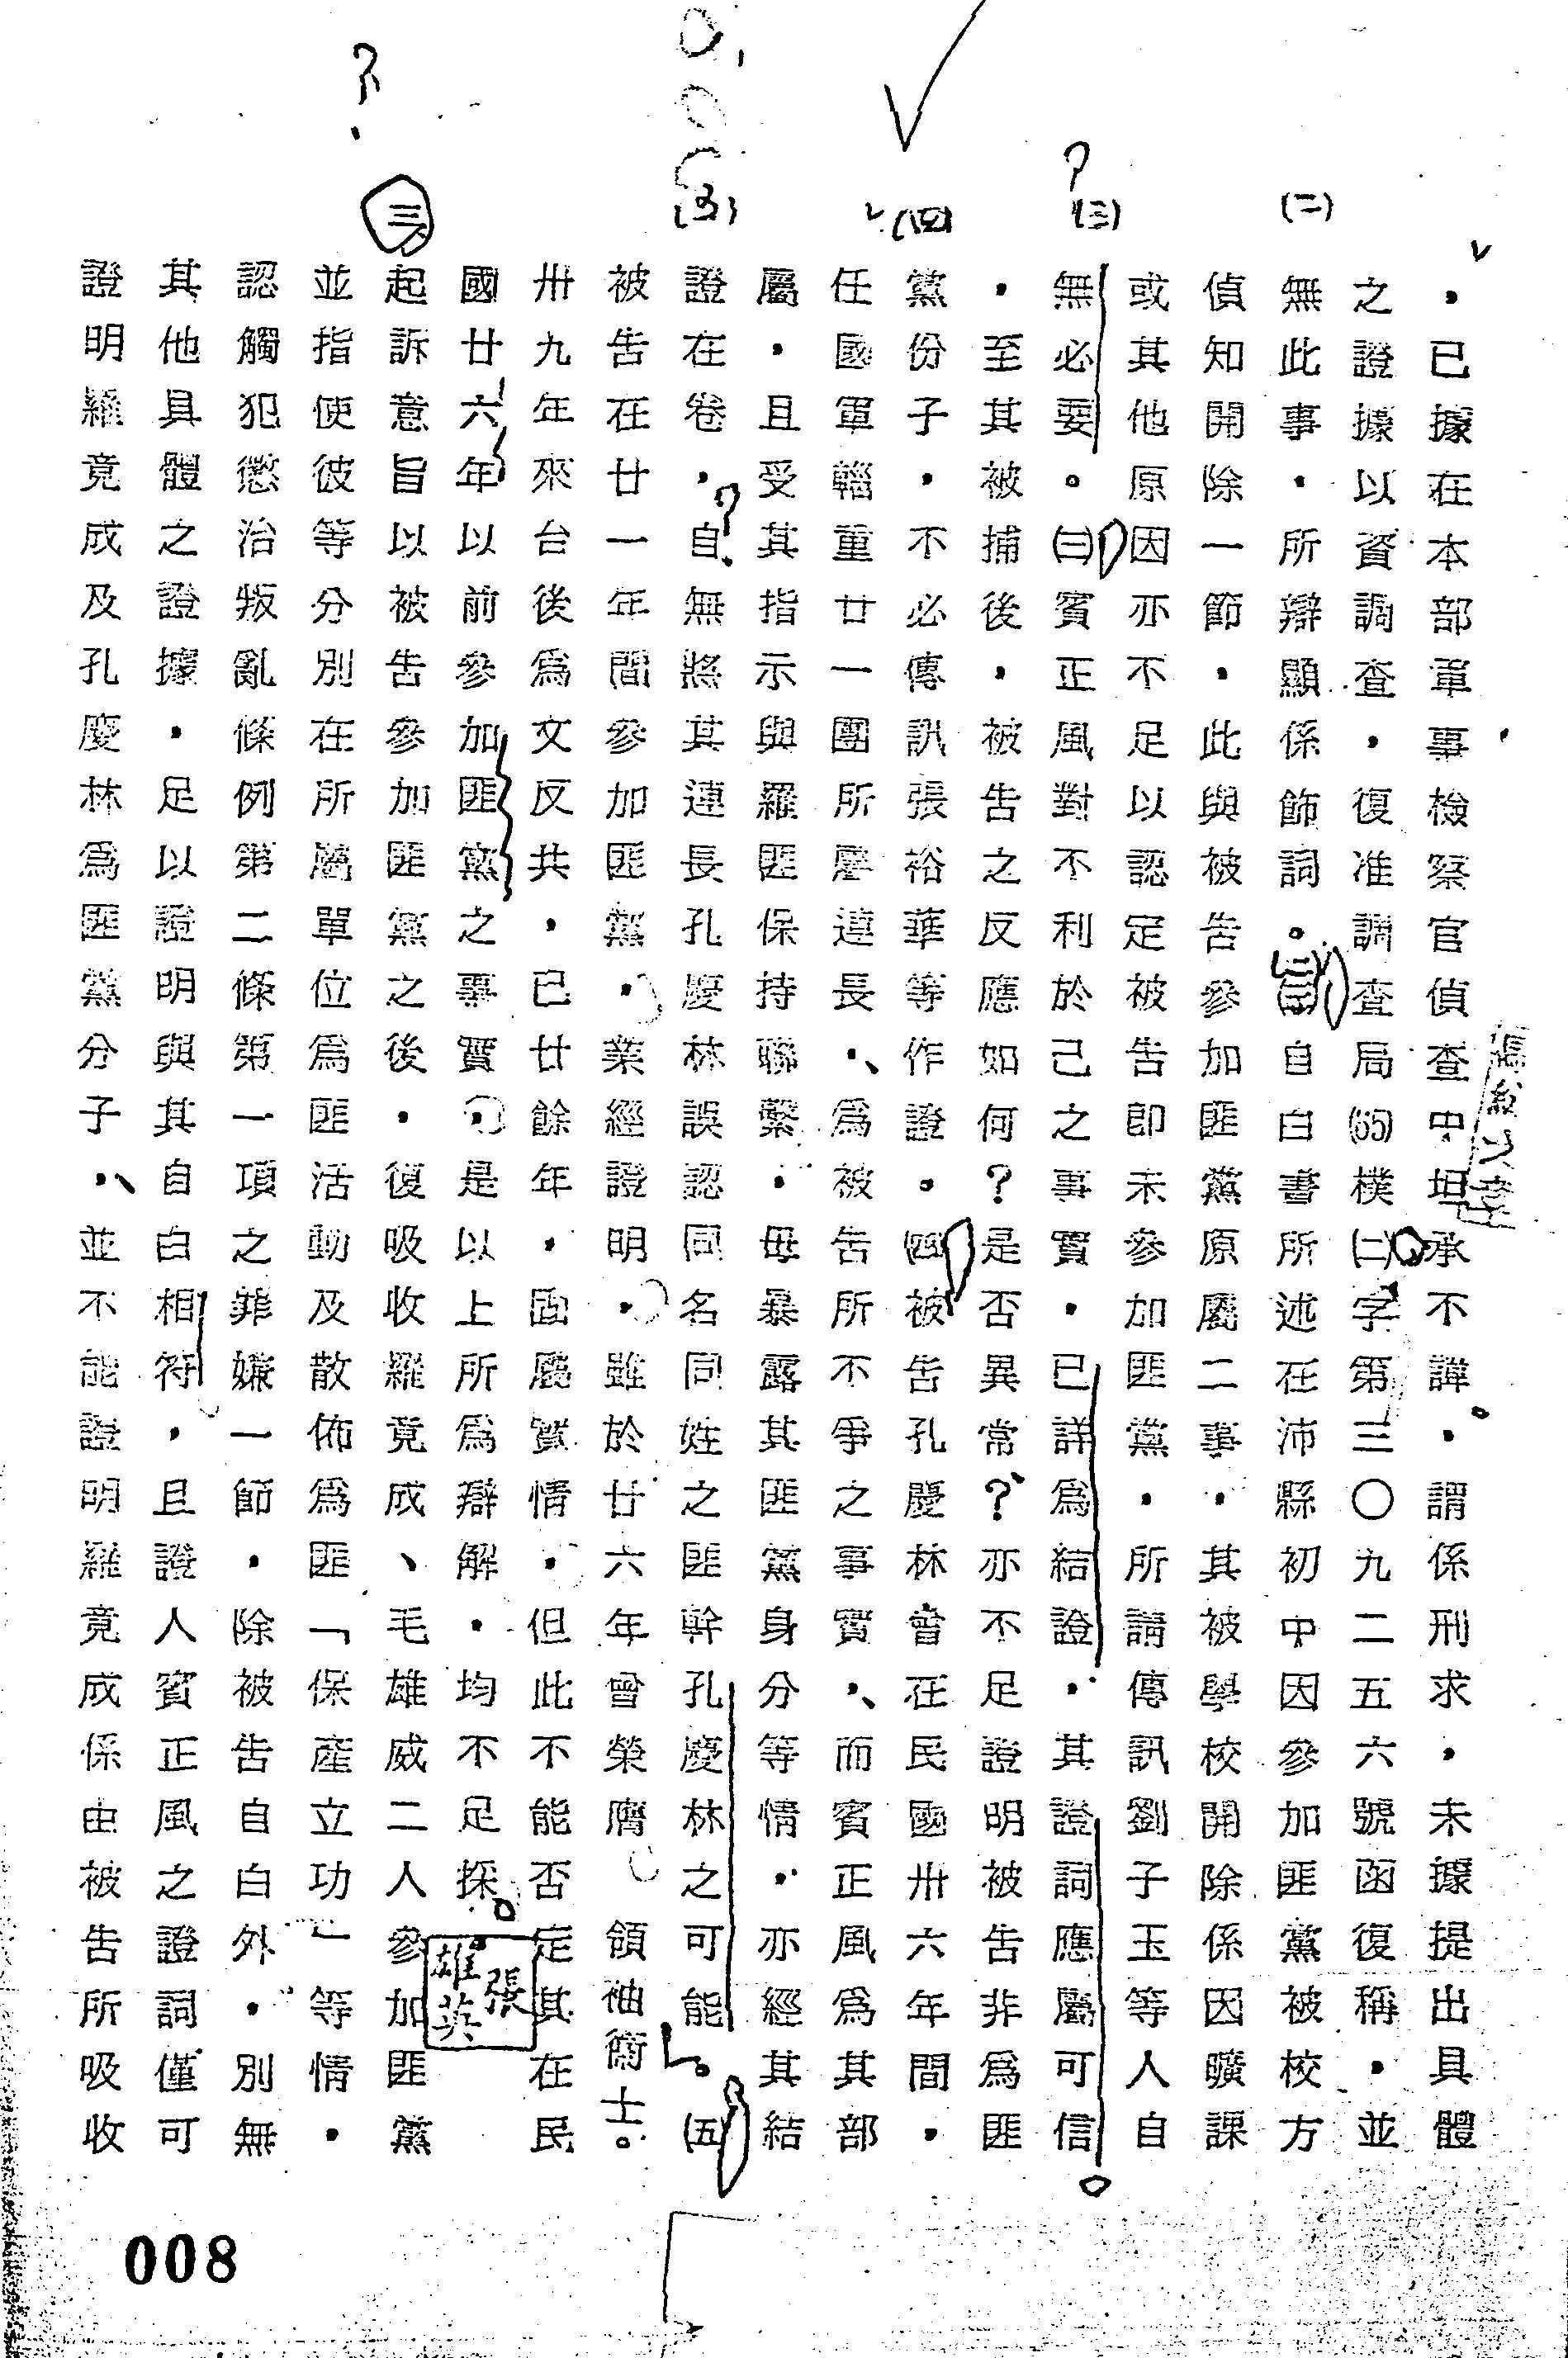 ，已據在本部軍事檢察官偵查中坦承不諱，謂係刑求，未據提出具體
之證據以資調查，復准調查局(65)樸(二)字第三〇九二五六號函復稱，並
無此事，所辯顯係飾詞。(二)自白書所述在沛縣初中因參加匪黨被校方
偵知開除一節，此與被告參加匪黨原屬二事，其被學校開除係因曠課
或其他原因亦不足以認定被告即未參加匪黨，所請傳訊劉子玉等人自
無必要。(三)賓正風對不利於己之事實，已詳為結證，其證詞應屬可信
，至其被捕後，被告之反應如何？是否異常？亦不足證明被告非為匪
黨份子，不必傳訊張裕華等作證。(四)被告孔慶林曾在民國卅六年間，
任國軍輜重廿一團所屬連長、為被告所不爭之事實、而賓正風為其部
屬，且受其指示與羅匪保持聯繫，毋暴露其匪黨身分、等情，亦經其結
證在卷，自無將其連長孔慶林誤認同名同姓之匪幹孔慶林之可能。(五)
被告在廿一年間參加匪黨，業經證明，雖於廿六年曾榮膺　領袖衛士。
卅九年來台後為文反共，已廿餘年，固屬實情，但此不能否定其在民
國廿六年以前參加匪黨之事實，是以上所為辯解，均不足採。
起訴意旨以被告參加匪黨之後，復吸收羅竟成、毛雄威二人參加匪黨
並指使彼等分別在所屬單位為匪活動及散佈為匪「保產立功」等情，
認觸犯懲治叛亂條例第二條第一項之罪嫌一節，除被告自白外，別無
其他具體之證據，足以證明與其自白相符，且證人賓正風之證詞僅可
證明羅竟成及孔慶林為匪黨分子、並不能證明羅竟成係由被告所吸收
?
√
?
(二)
(三)
(四)
(五)
三
張雄英
008